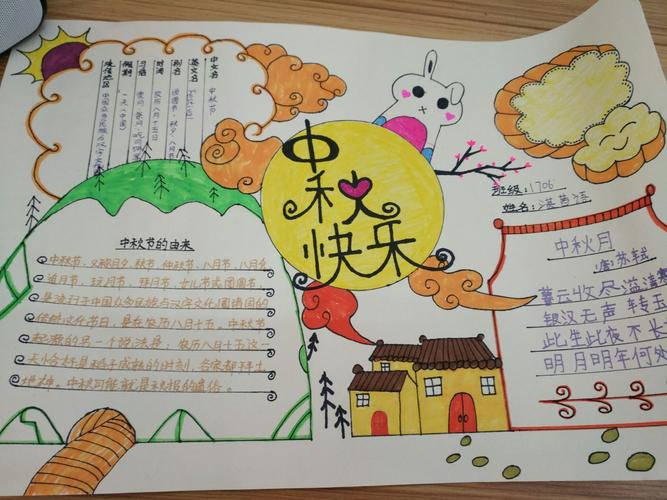 中文名 中秋节
英文名
别名 团圆节、秋夕、八月节
时间 农历八月十五日
习俗 赏月、祭月、吃月饼
假期 一天(中国)
流行地区 中国众多民族与汉字文
中秋快乐
班级:1706
姓名:
中秋节的由来
中秋节、又称月夕、秋节、仲秋节、八月节、八月会
追月节、玩月节、拜月节、女儿节或团圆节、
是流行于中国众多民族与汉字文化圈诸国的
传统文化节日,是在农历八月十五。中秋节
起源的另一个说法是:农历八月十五这一
天 是稻子成熟的时刻,各家都拜土
地神。中秋可能就是秋报的遗俗。
中秋月
苏轼
暮云收尽溢清
银汉无声转玉
此生此夜不长
明月明年何处